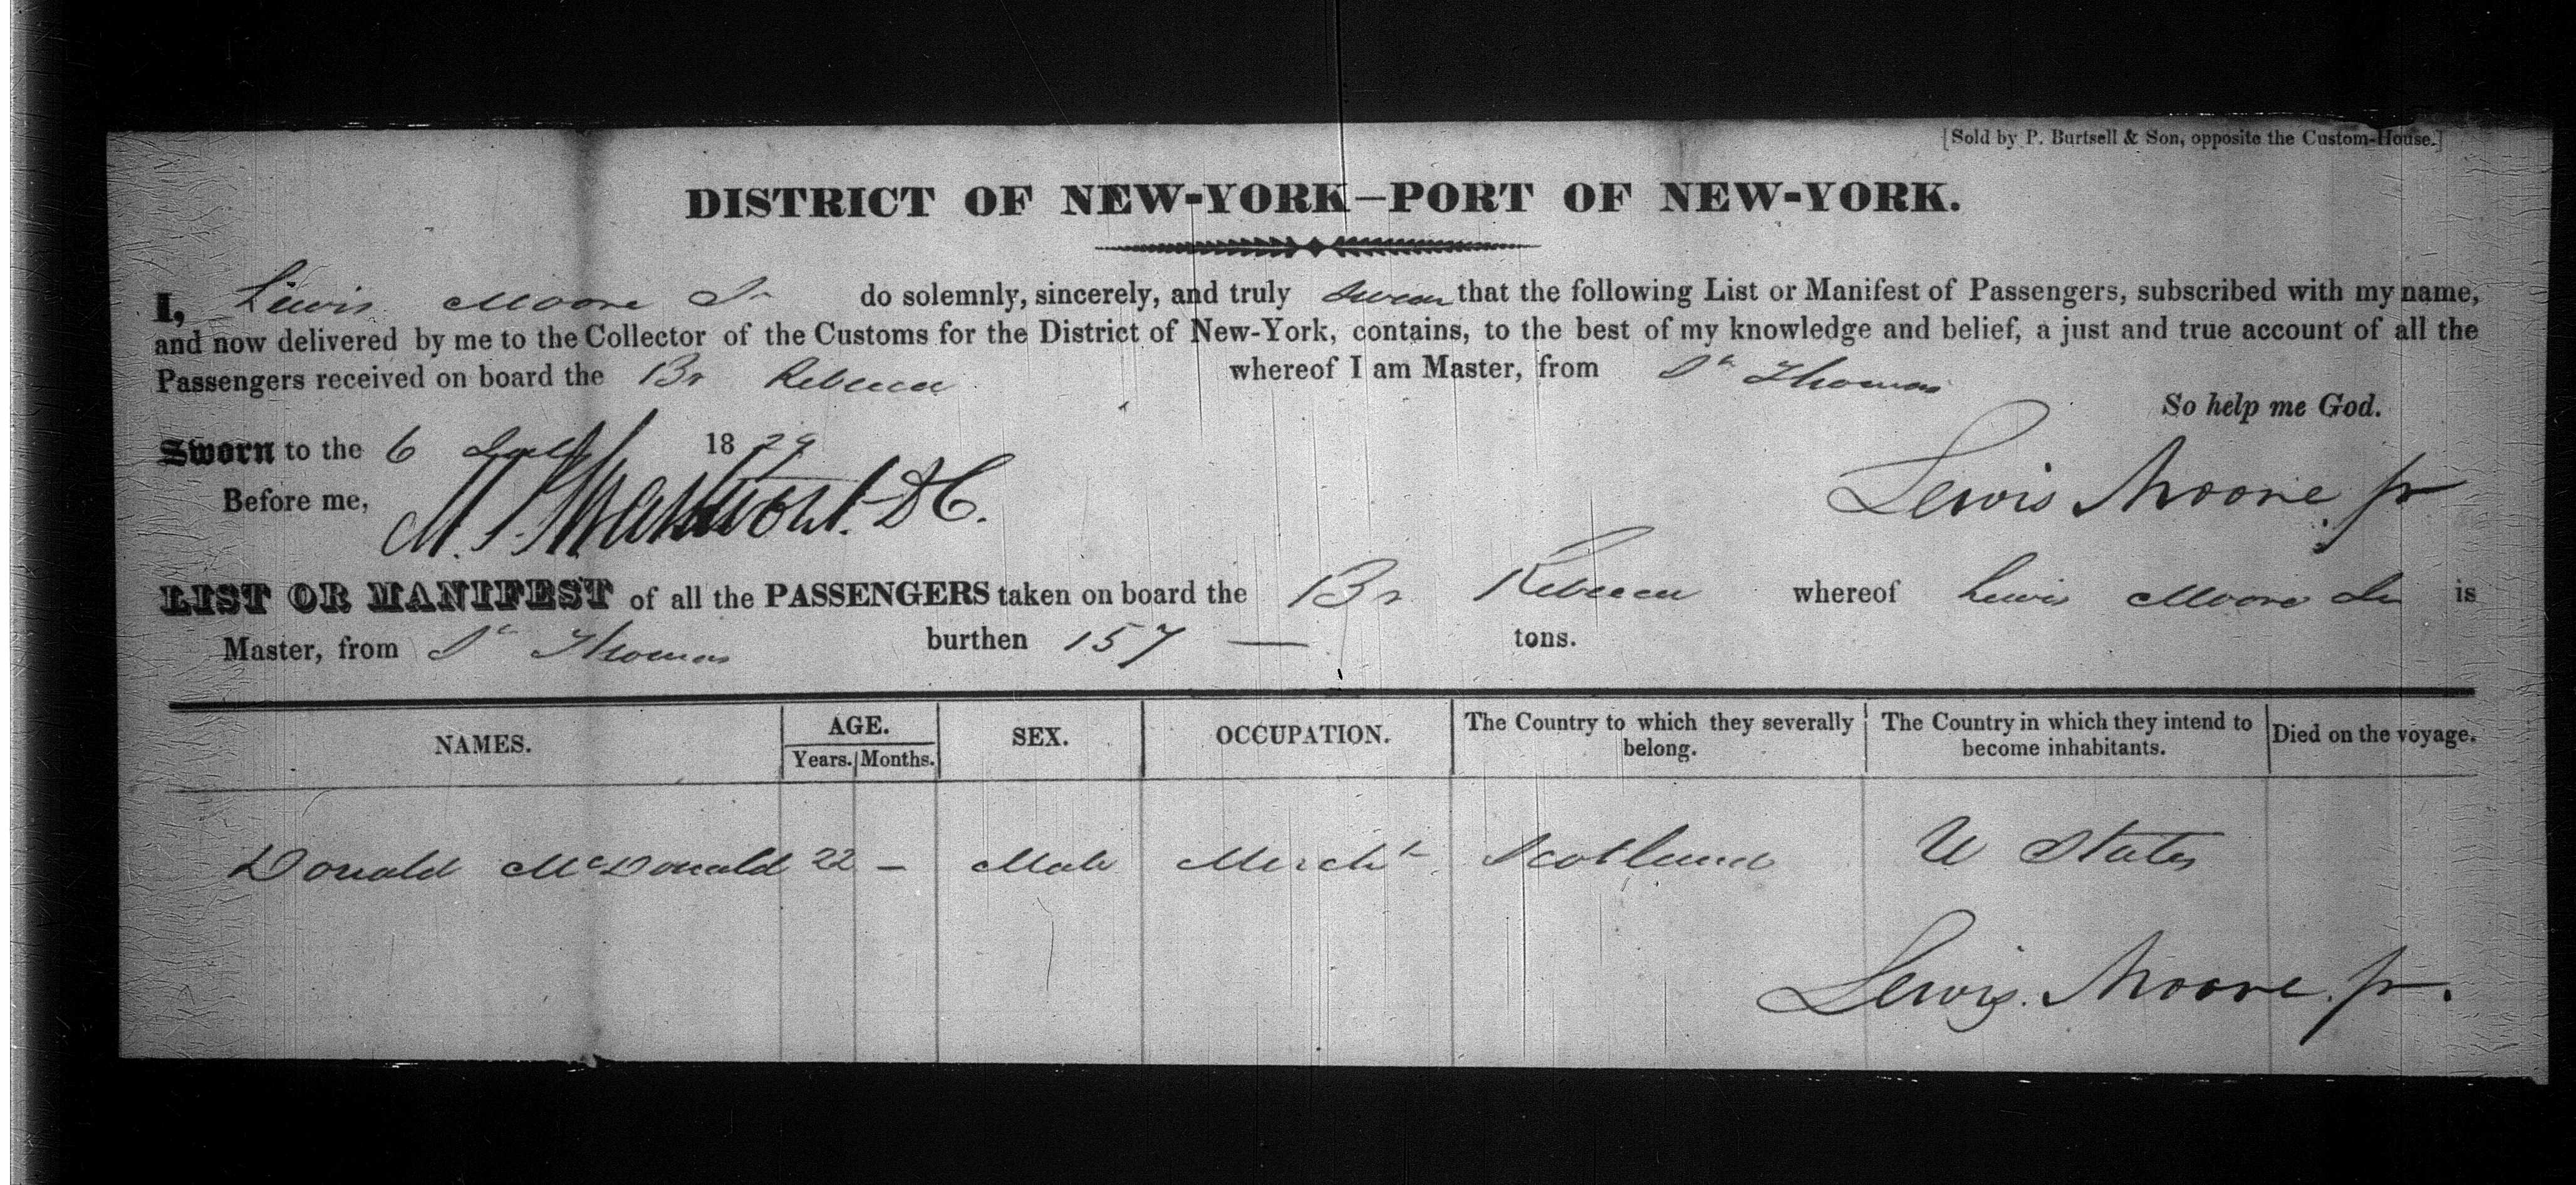 [Sold by P. Burtsell & Son, opposite the Custom-House.]
DISTRICT OF NEW-YORK—PORT OF NEW-YORK.
I, Lewis Moore Jr do solemnly, sincerely, and truly swear that the following List or Manifest of Passengers, subscribed with my name,
and now delivered by me to the Collector of the Customs for the District of New-York, contains, to the best of my knowledge and belief, a just and true account of all the
Passengers received on board the Br Rebecca whereof I am Master, from St Thomas
So help me God.
Sworn to the 6 July 1829
Before me, D C.
Lewis Moore jr
LIST OR MANIFEST of all the PASSENGERS taken on board the Br Rebecca whereof Lewis Moore Jr is
Master, from St Thomas burthen 157 — tons.
NAMES. AGE. Years. Months. SEX. OCCUPATION. The Country to which they severally belong. The Country in which they intend to become inhabitants. Died on the voyage.
Donald McDonald 22 — Male Mercht Scotland U States
Lewis Moore jr.